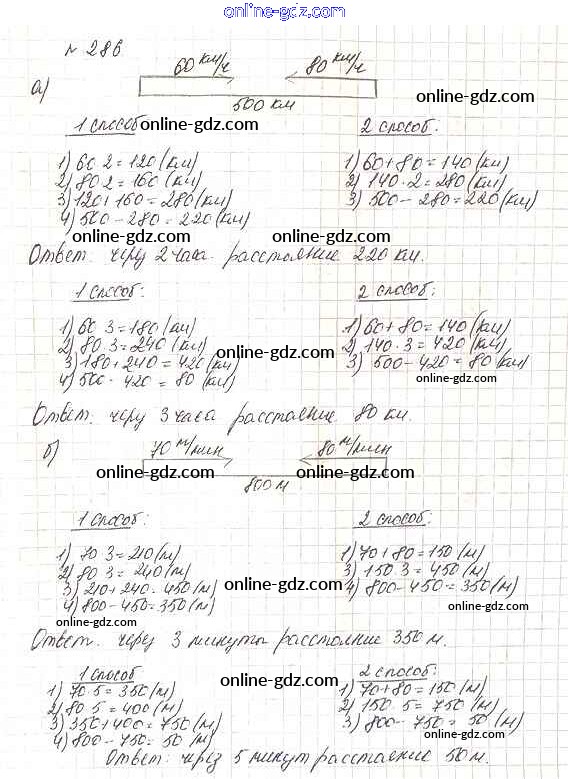 online-gdz.com
№ 286
а) 60 км/ч 80 км/ч
500 км
online-gdz.com
1 способ online-gdz.com 2 способ:
1) 60 2 = 120 (км) 1) 60 + 80 = 140 (км)
2) 80 2 = 160 (км) 2) 140 · 2 = 280 (км)
3) 120 + 160 = 280 (км) 3) 500 - 280 = 220 (км)
4) 500 - 280 = 220 (км)
online-gdz.com online-gdz.com
Ответ. через 2 часа расстояние 220 км.
1 способ: 2 способ:
1) 60 3 = 180 (км) 1) 60 + 80 = 140 (км)
2) 80 3 = 240 (км) 2) 140 · 3 = 420 (км)
3) 180 + 240 = 420 (км) 3) 500 - 420 = 80 (км)
4) 500 - 420 = 80 (км)
online-gdz.com
online-gdz.com
Ответ. через 3 часа расстояние 80 км.
б) 70 м/мин 80 м/мин
800 м
online-gdz.com online-gdz.com
1 способ: 2 способ:
1) 70 3 = 210 (м) 1) 70 + 80 = 150 (м)
2) 80 3 = 240 (м) 3) 150 3 = 450 (м)
3) 210 + 240 = 450 (м) 4) 800 - 450 = 350 (м)
4) 800 - 450 = 350 (м)
online-gdz.com
online-gdz.com
online-gdz.com
Ответ. через 3 минуты расстояние 350 м.
1 способ 2 способ:
1) 70 5 = 350 (м) 1) 70 + 80 = 150 (м)
2) 80 5 = 400 (м) 2) 150 5 = 750 (м)
3) 350 + 400 = 750 (м) 3) 800 - 750 = 50 (м)
4) 800 - 750 = 50 (м)
online-gdz.com
online-gdz.com
online-gdz.com
Ответ: через 5 минут расстояние 50 м.